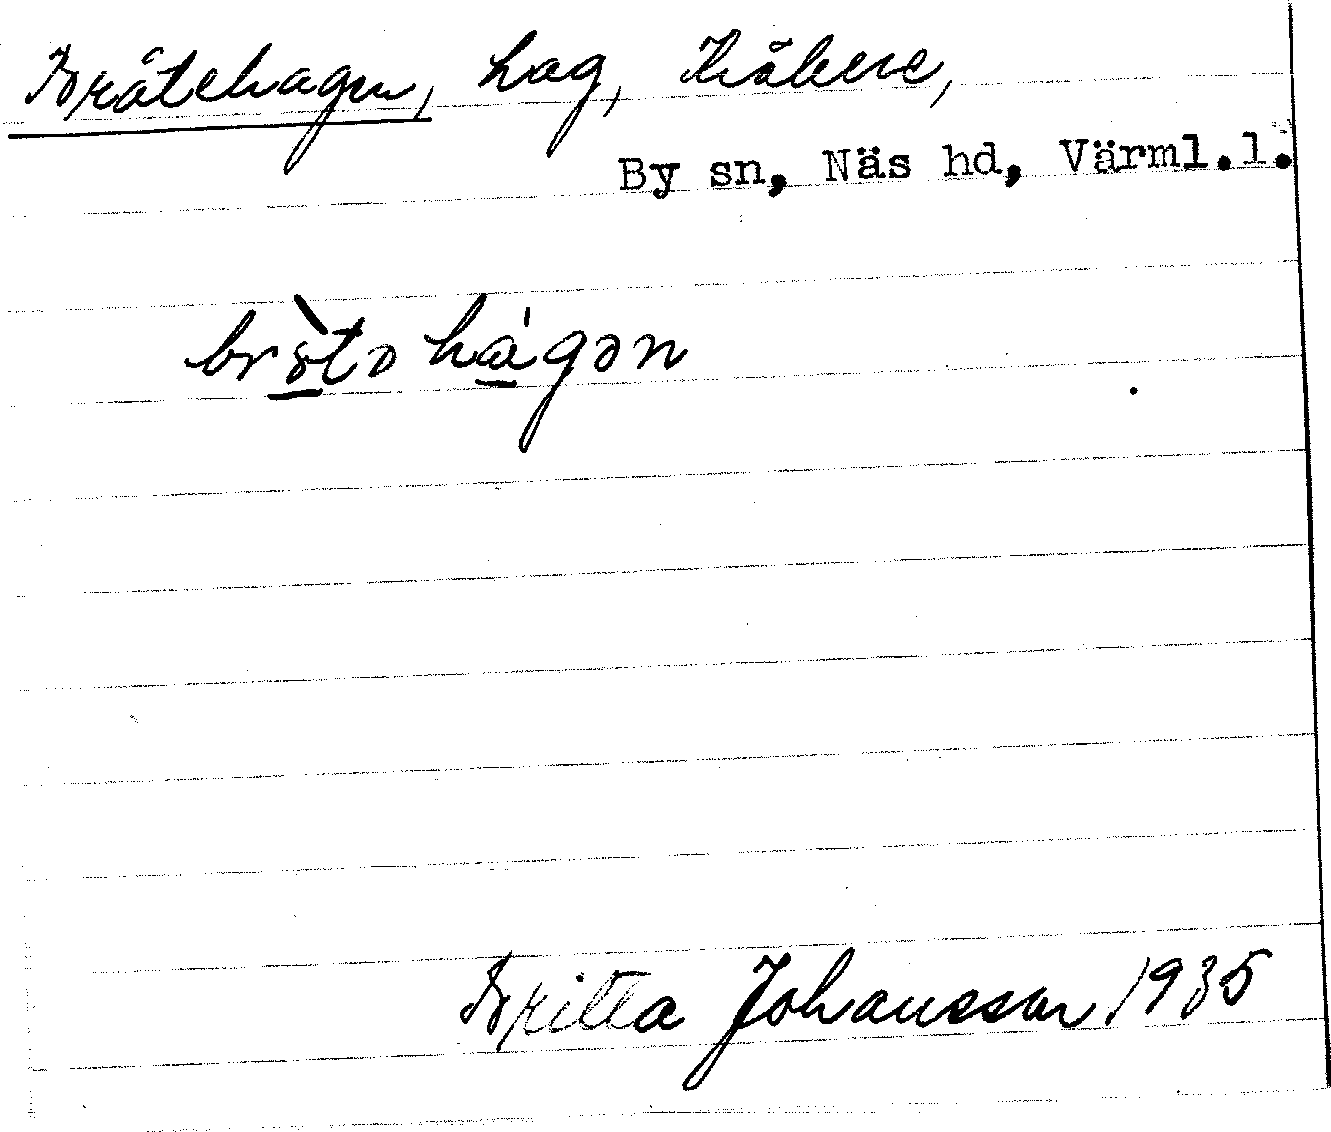 Bråtehagen, hag, Kråkene,
By sn, Näs hd, Värml.l.
bròtə hágən
Britta Johansson 1935